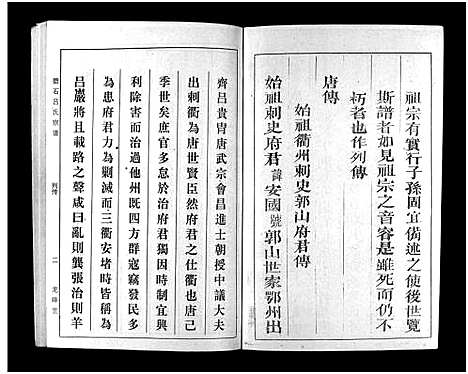 祖宗有實行子孫固宜偹述之使後世覽
斯譜者如見祖宗之音容是雖死而仍不
朽者也作列傳
唐傳
始祖衢州刺史郭山府君傳
始祖刺史府君諱安國號郭山世家鄂州出
齊呂貴冑唐武宗會昌進士朝授中議大夫
出刺衢為唐世賢臣然府君之仕衢也唐己
季世矣庶官多怠於治府君獨因時制宜興
利除害而治過他州既四方群寇竊發民多
為患府君力為剿滅而三衢安堵時皆稱為
呂嚴將且載路之聲咸曰亂則龔張治則羊
呂氏宗譜
列傳
二